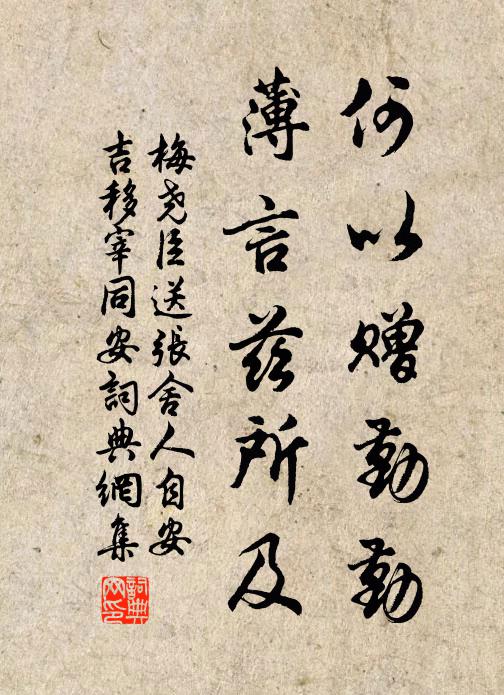 何以赠勤勤
薄言兹所及
梅尧臣送張舍人自安
吉移宰同安詞典網集
詞典网印